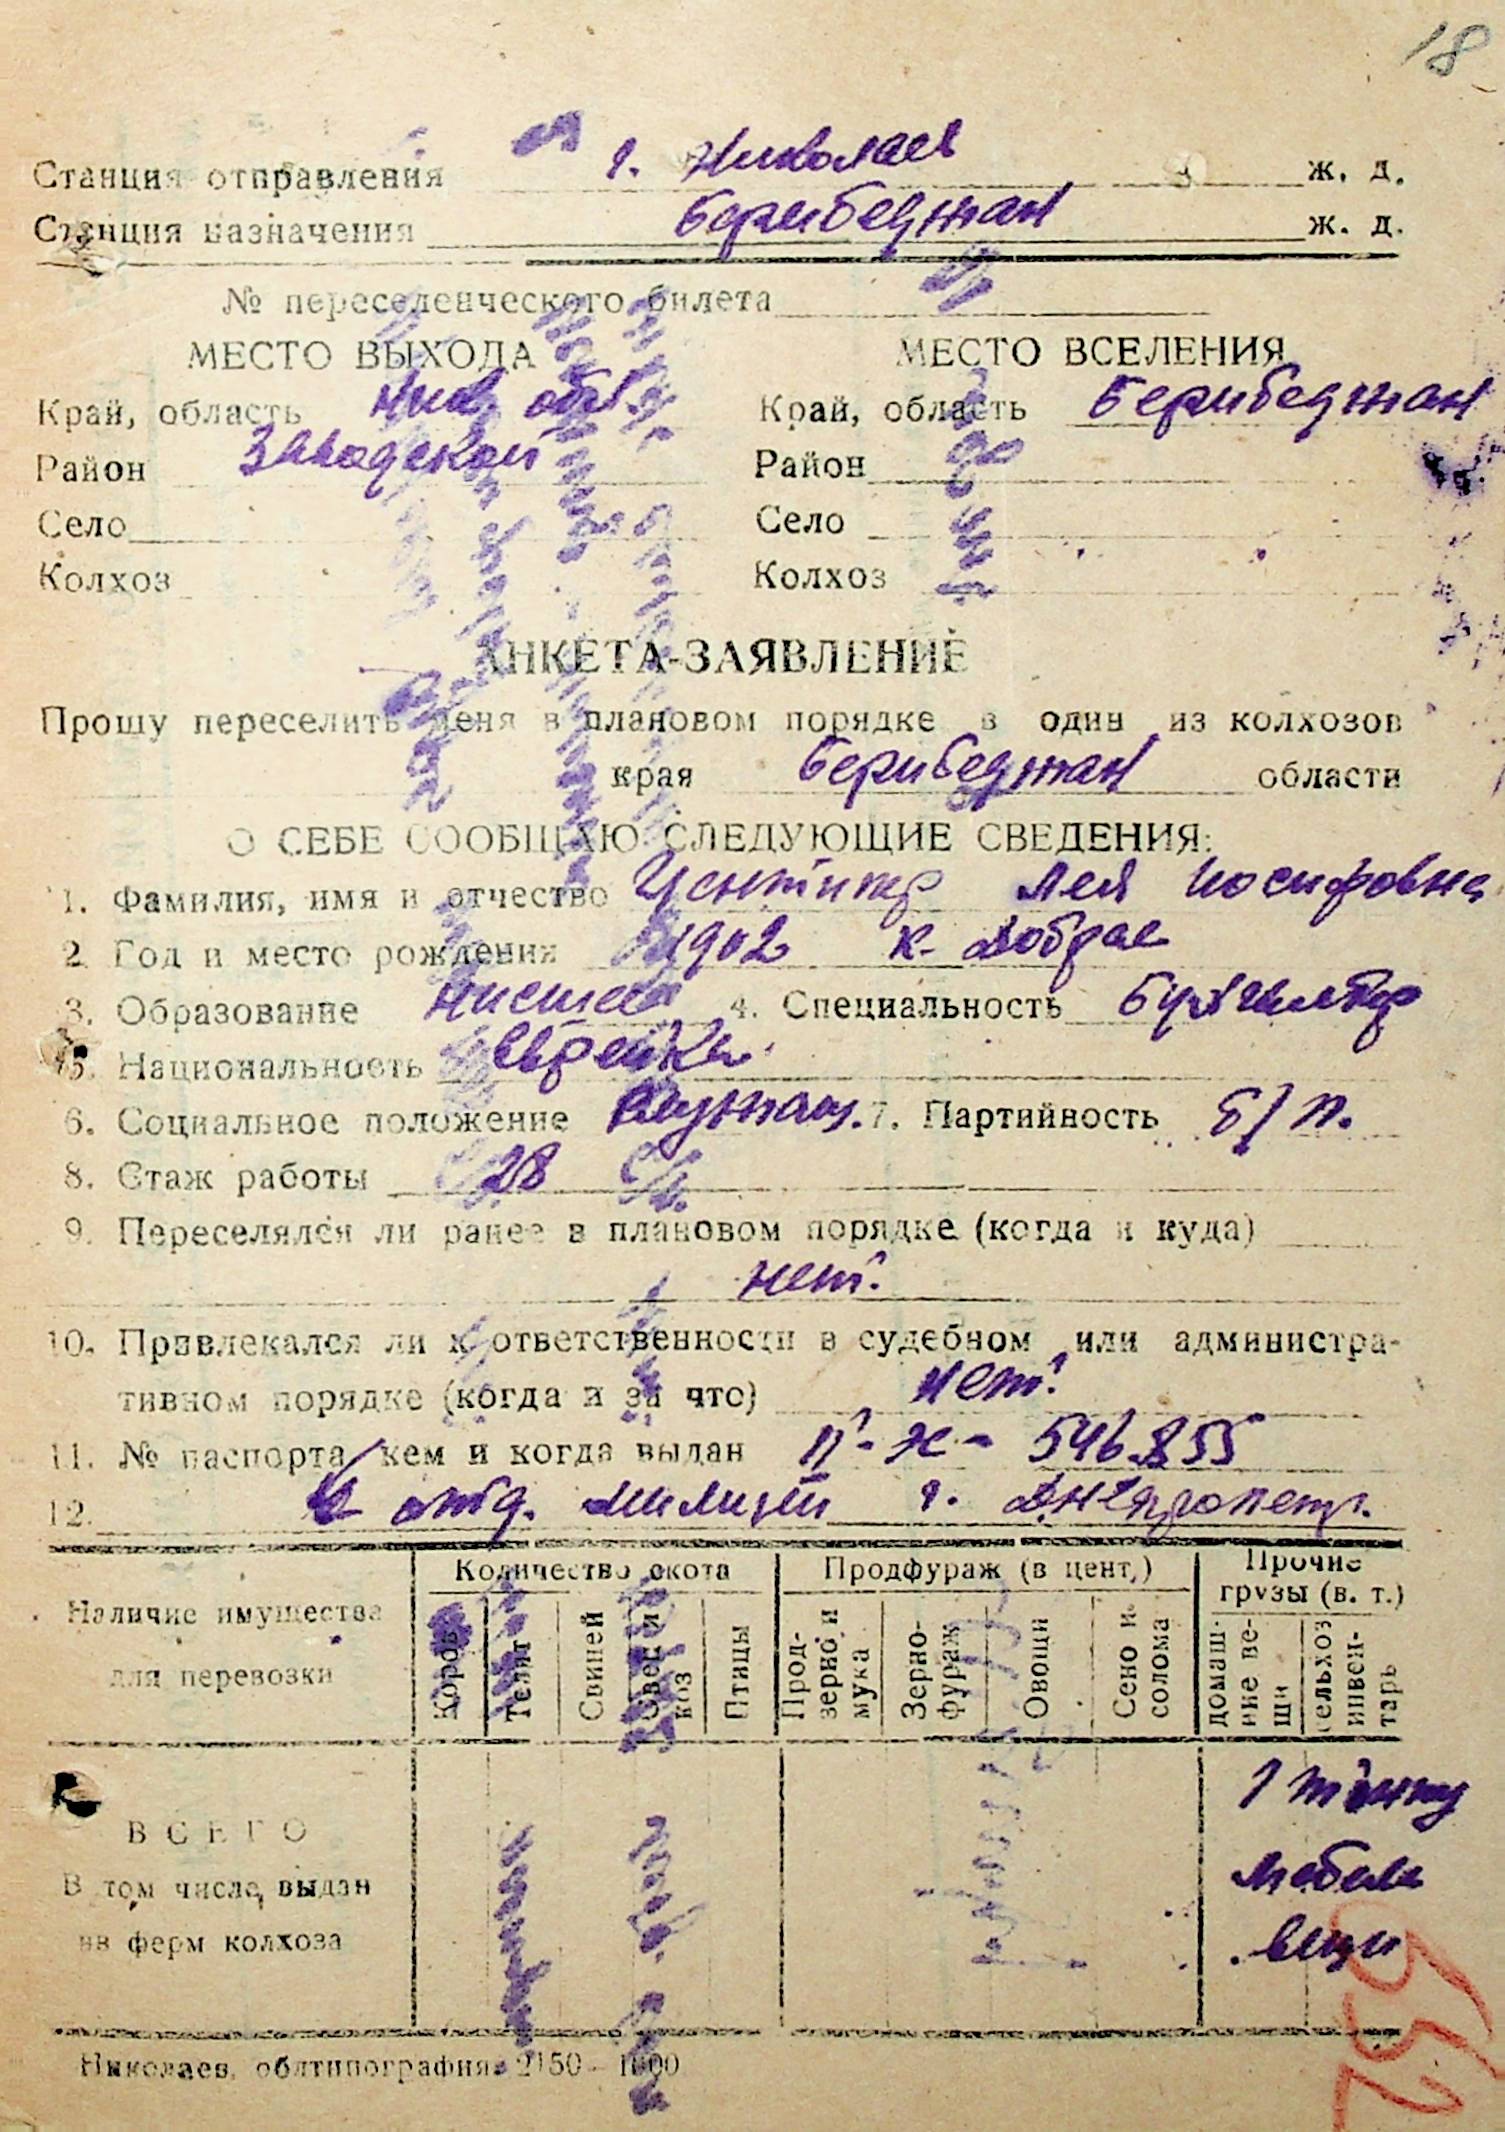 18
Станция отправления г. Николаев ж. д.
Станция назначения Берибеджан ж. д.
№ переселенческого билета
МЕСТО ВЫХОДА МЕСТО ВСЕЛЕНИЯ
Край, область Ник. обл. Край, область Берибеджан
Район Заводской Район
Село Село
Колхоз Колхоз
АНКЕТА-ЗАЯВЛЕНИЕ
Прошу переселить меня в плановом порядке в один из колхозов
края Берибеджан области
О СЕБЕ СООБЩАЮ СЛЕДУЮЩИЕ СВЕДЕНИЯ:
1. Фамилия, имя и отчество Лея Иосифовна
2. Год и место рождения 1902 к. Доброе
3. Образование Нисшее 4. Специальность Бухгалтер
5. Национальность Еврейка
6. Социальное положение Служащ. 7. Партийность б/п.
8. Стаж работы 28
9. Переселялся ли ранее в плановом порядке (когда и куда)
нет.
10. Привлекался ли к ответственности в судебном или администра-
тивном порядке (когда и за что) нет.
11. № паспорта, кем и когда выдан 546855
12. отд. милиции г. Днепропетр.
Количество скота Продфураж (в цент.) Прочие грузы (в. т.)
Наличие имущества для перевозки
Коров Телят Свиней Овец и коз Птицы Прод-зерно и мука Зерно-фураж Овощи Сено и солома домаш-ние ве-щи сельхоз инвен-тарь
1 тонну
ВСЕГО мебель
В том числе, выдан вещи
из ферм колхоза
552
Николаев, облтипография 2150—1000